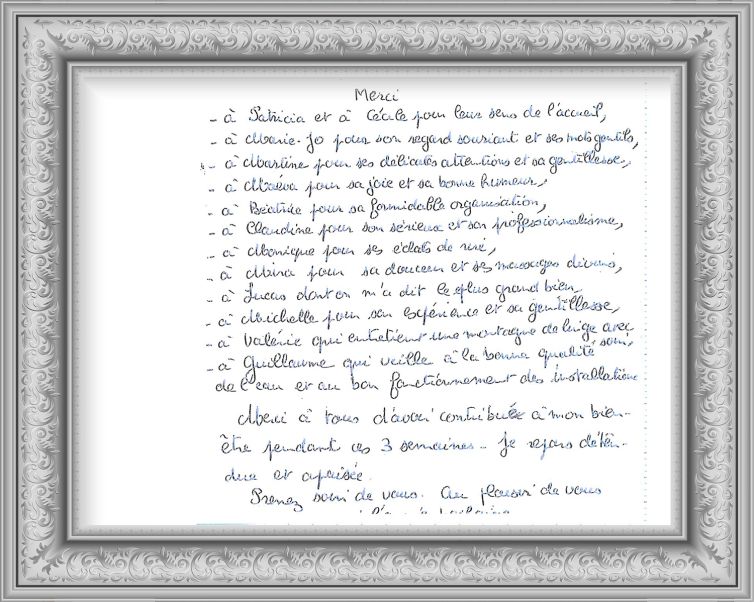 Merci
- à Patricia et à Cécile pour leur sens de l'accueil,
- à Marie-Jo pour son regard souriant et ses mots gentils,
- à Martine pour ses délicates attentions et sa gentillesse,
- à Maéva pour sa joie et sa bonne humeur,
- à Béatrice pour sa formidable organisation,
- à Claudine pour son sérieux et son professionnalisme,
- à Monique pour ses éclats de rire,
- à Mina pour sa douceur et ses massages divins,
- à Lucas dont on m'a dit le plus grand bien,
- à Michelle pour son expérience et sa gentillesse,
- à Valérie qui entretient une montagne de linge avec soin,
- à Guillaume qui veille à la bonne qualité
de l'eau et au bon fonctionnement des installations
Merci à tous d'avoir contribué à mon bien-
être pendant ces 3 semaines. Je repars déten-
due et apaisée.
Prenez soin de vous. Au plaisir de vous